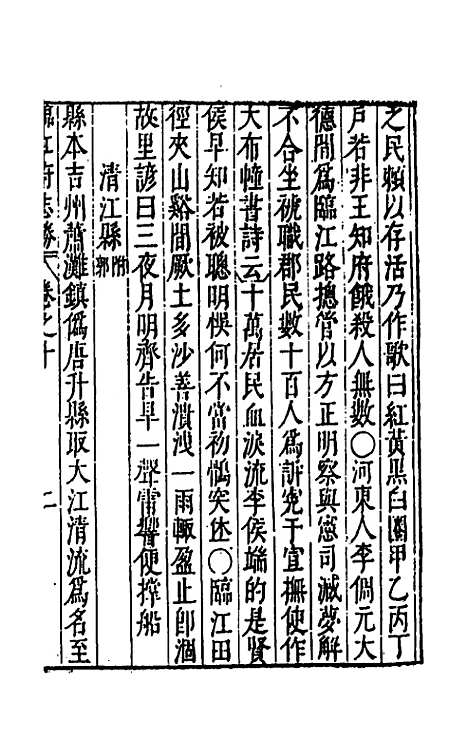 之民賴以存活乃作歌曰紅黃黑白圈甲乙丙丁
戶若非王知府餓殺人無數〇河東人李倜元大
德間爲臨江路摠管以方正明察與憲司減夢解
不合坐褫職郡民數十百人爲訴寃于宣撫使作
大布幢書詩云十萬居民血淚流李侯端的是賢
侯早知若被聰明悞何不當初慣突迷〇臨江田
徑夾山谿間厥土多沙善潰洩一雨輙盈止卽涸
故里諺曰三夜月明齊告旱一聲雷響便撑船
清江縣附郭
縣本吉州蕭灘鎮僞唐升縣取大江清流爲名至
臨江府志勝 卷之十 二